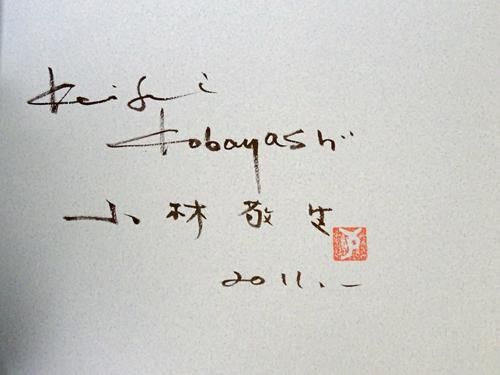 Keisei
Kobayashi
小林敬生
2011.-